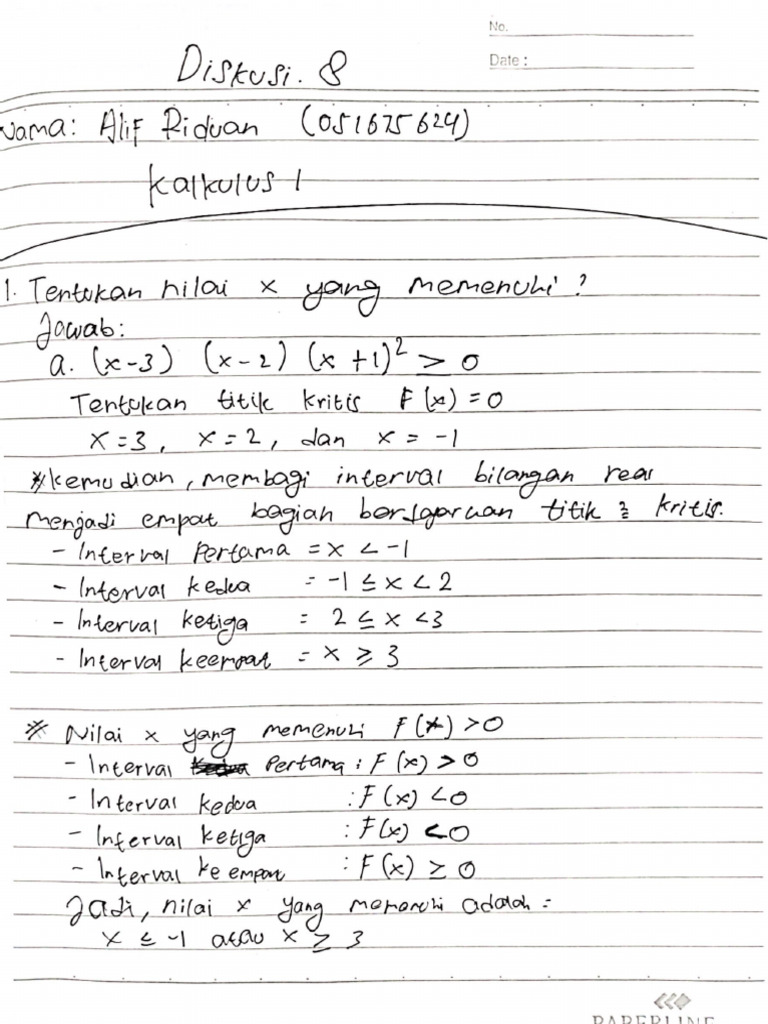 No.
Date :
Diskusi. 8
Nama: Alif Riduan (051675624)
Kalkulus 1
1. Tentukan nilai x yang memenuhi?
Jawab:
a. (x-3) (x-2) (x +1)² ≥ 0
Tentukan titik kritis F(x) = 0
x = 3, x = 2, dan x = -1
*kemudian, membagi interval bilangan real
menjadi empat bagian titik kritis.
- Interval Pertama = x < -1
- Interval kedua = -1 ≤ x < 2
- Interval ketiga = 2 ≤ x < 3
- Interval keempat = x ≥ 3
* Nilai x yang memenuhi F(x) > 0
- Interval Pertama : F(x) > 0
- Interval kedua : F(x) < 0
- Interval ketiga : F(x) < 0
- Interval ke empat : F(x) ≥ 0
Jadi, nilai x yang memenuhi adalah =
x ≤ -1 atau x ≥ 3
PAPERLINE